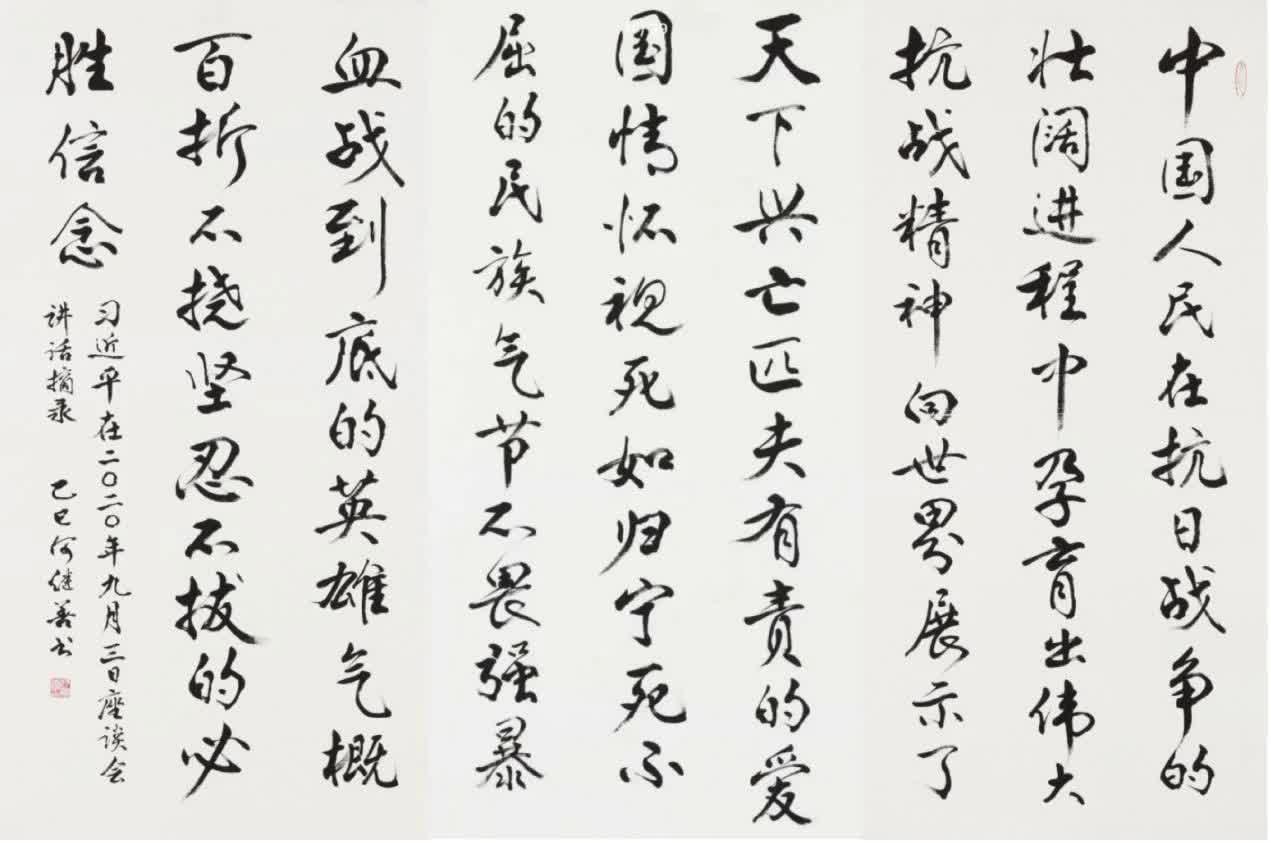 中国人民在抗日战争的
壮阔进程中孕育出伟大
抗战精神向世界展示了
天下兴亡匹夫有责的爱
国情怀视死如归宁死不
屈的民族气节不畏强暴
血战到底的英雄气概
百折不挠坚忍不拔的必
胜信念
习近平在二〇二〇年九月三日座谈会
讲话摘录 乙巳何继善书